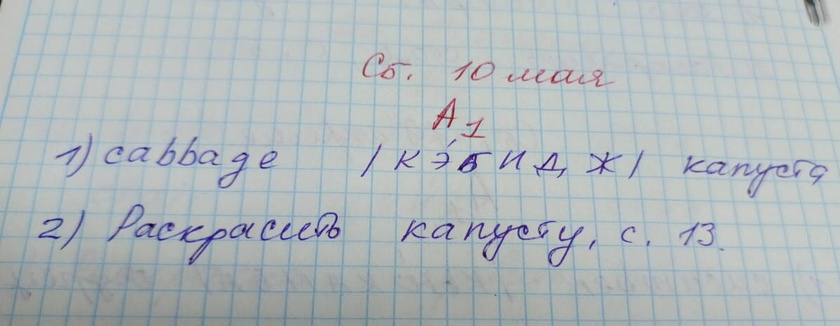 Сб. 10 мая
А1
1) cabbage /КЭ́БИДЖ/ капуста
2) Раскрасить капусту, с. 13.